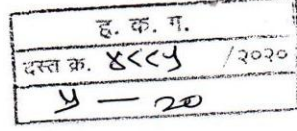 ह. क. ग.
दस्त क्र. ४८८५ /२०२०
५ — २०